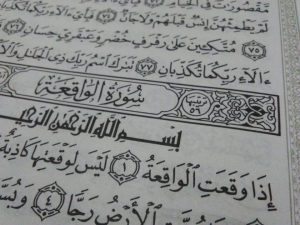 مَّقْصُورَٰتٌ فِي ٱلْخِيَامِ
لَمْ يَطْمِثْهُنَّ إِنسٌ قَبْلَهُمْ وَلَا جَآنٌّ ٧٤ فَبِأَيِّ
٧٥ مُتَّكِـِٔينَ عَلَىٰ رَفْرَفٍ خُضْرٍ وَعَبْقَرِيٍّ حِسَانٍ
ءَالَآءِ رَبِّكُمَا تُكَذِّبَانِ ٧٧ تَبَٰرَكَ ٱسْمُ رَبِّكَ ذِي ٱلْجَلَٰلِ
سُورَةُ الوَاقِعَةِ ترتيبها ٥٦
بِسْمِ ٱللَّهِ ٱلرَّحْمَٰنِ ٱلرَّحِيمِ
إِذَا وَقَعَتِ ٱلْوَاقِعَةُ ١ لَيْسَ لِوَقْعَتِهَا كَاذِبَةٌ
ٱلْأَرْضُ رَجًّا ٤ وَبُسَّتِ